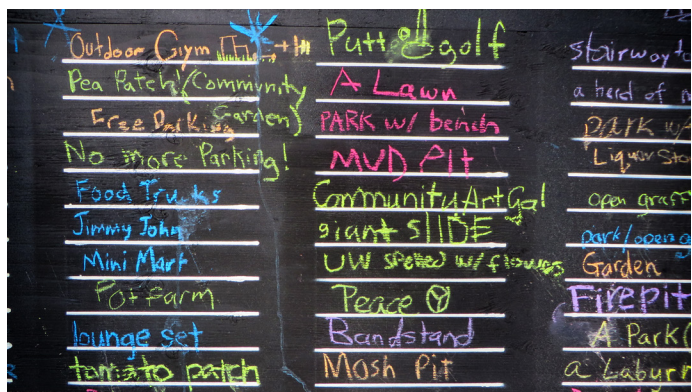 Outdoor Gym
Pea Patch! (Community
Garden)
Free Parking
No more Parking!
Food Trucks
Jimmy John
Mini Mart
Pot farm
lounge set
tomato patch
Putt golf
A Lawn
PARK w/ bench
MUD PIT
Community Art Gal
giant SlIDE
UW spelled w/ flowers
Peace
Bandstand
Mosh Pit
stairway to
a herd of
park w/
Liquor Sto
open graff
park/open
Garden
Firepit
A Park
a Labyr